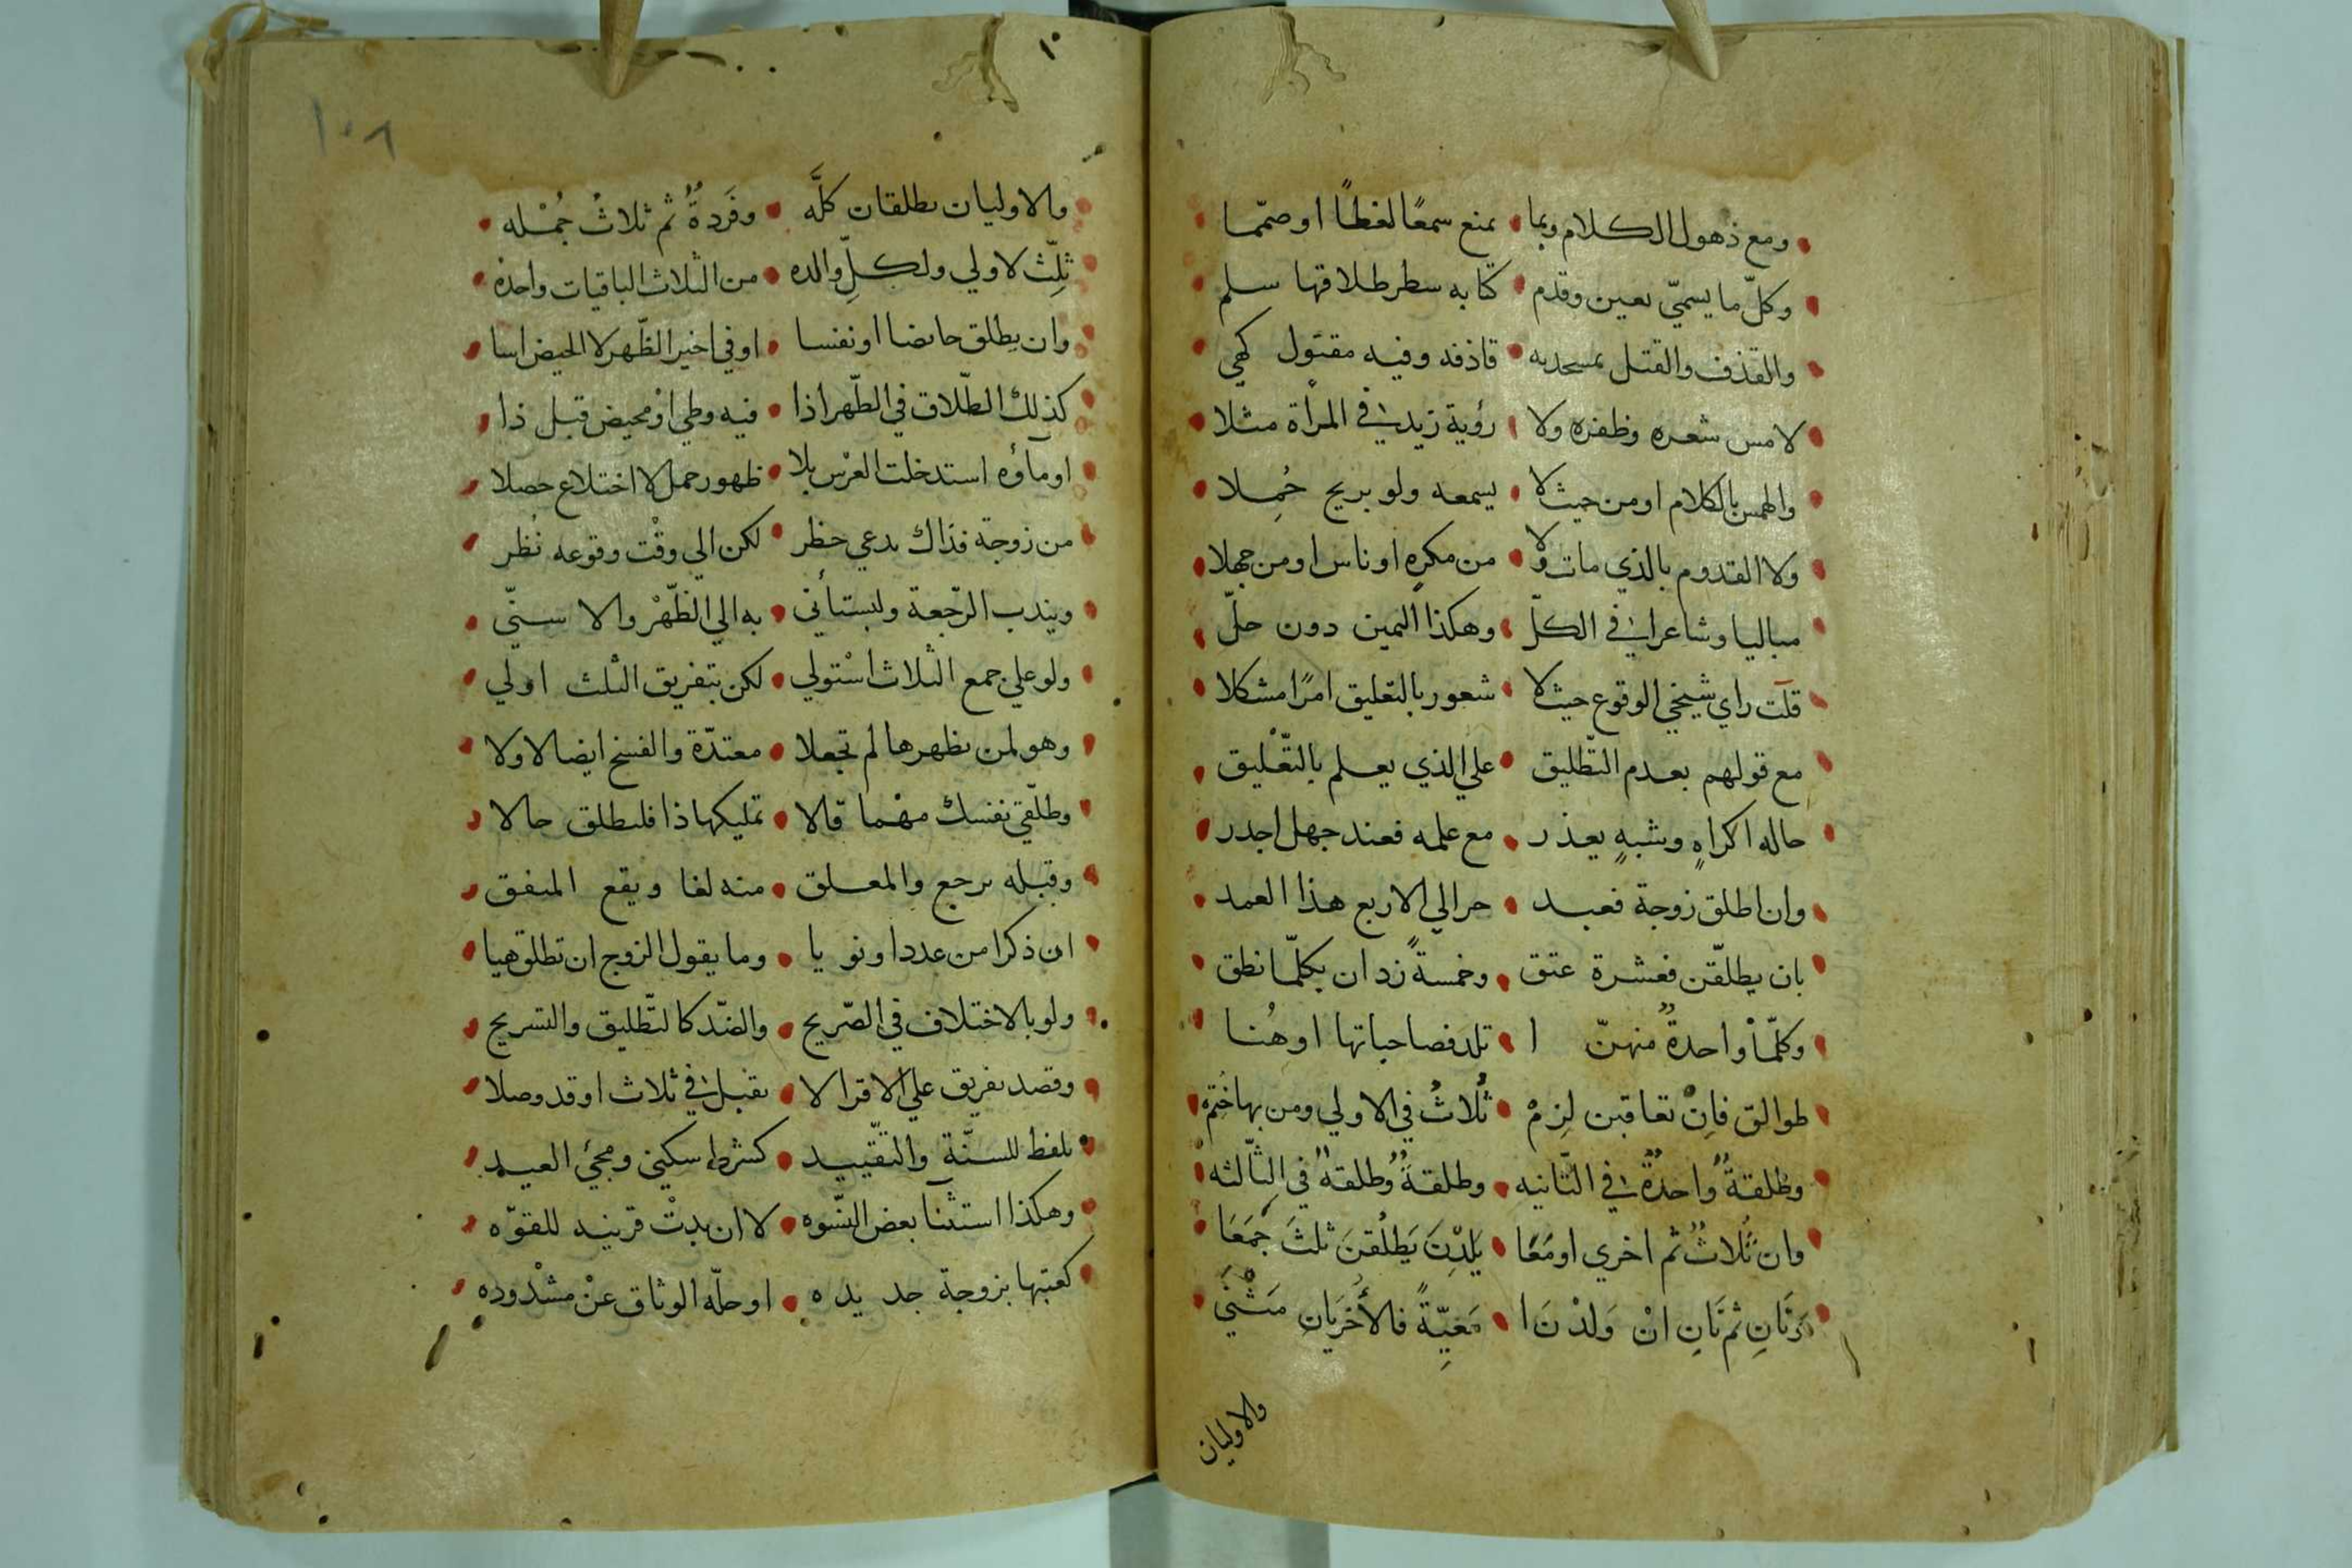 ومع ذهول الكلام وبما • يمنع سمعًا لغطًا او صمّما
وكلّ ما يسميّ بعين وقدم • كتابه سطر طلاقها سلم
والقذف والقتل بمسجد به • قاذفه وفيه مقتول كهي
لا مس شعره وظفره ولا • رؤية زيد في المرأة مثلا
والهمس بالكلام او من حيث لا • يسمعه ولو بريح حُمِلا
ولا القدوم بالذي مات ولا • من مكرهٍ او ناس او من جهلا
مباليا وشاعرا في الكلّ • وهكذا اليمين دون حلّ
قلت راي شيخي الوقوع حيث لا • شعور بالتعليق امرًا مشكلا
مع قولهم بعدم التّطليق • علي الذي يعلم بالتّعْليق
حاله اكراهٍ وشبهٍ يعذر • مع علمه فعند جهل اجدر
وان اطلق زوجة فعبد • حر الي الاربع هذا العمد
بان يطلقّن فعشرة عتق • وخمسةً زد ان بكلمّا نطق
وكلّما واحدةٌ منهنّ ا • تلد فصاحباتها او هُنا
طوالق فاِنْ تعاقبن لِزمْ • ثُلاثٌ في الاولي ومن بها خُتم
وطُلقةٌ واحدةٌ في الثّانيه • وطلقةٌ وطلقةٌ في الثّالثه
وان ثُلاثٌ ثم اخري او مَعَا • يَلِدْنَ يَطلُقنَ ثلثَ جُمَعَا
ثم ثَانِ انْ وَلدْنَ ا • مَعِيّةً فالأُخْرَيَانِ مَثْنَي
والاوليان
١٠
١٠٨
والاوليان يطلقان كلَّه • وفَردةٌ ثم ثلاثُ جُمْله
ثلِّث لاولي ولكلِّ والده • من الثلاث الباقيات واحدهْ
وان يطلق حائضا او نفسا • او في اخير الطّهر لا الحيض اسا
كذلك الطّلاق في الطّهر اذا • فيه وطي اوْ محيض قبل ذا
او مآؤه استدخلت العرْس بلا • ظهور حمل لا اختلاع حصلا
من زوجة فذاك بدعي حظر • لكن الي وقْت وقوعه نُظر
ويندب الرّجعة وليستأني • به الي الطّهْر والا سنّي
ولو علي جمع الثلاث اسْتولي • لكن بتفريق الثلث اولي
وهو لمن بظهرها لم تجعلا • معتدّة والفسخ ايضا لا ولا
وطلّقي نفسك مهْما قالا • تمليكها ذا فليطلق حالا
وقبله يرجع والمعلق • منه لغا ويقع المتفق
ان ذكرا من عدد او نويا • وما يقول الزوج ان تطلق هيا
ولو بالاختلاف في الصّريح • والضّد كالتّطليق والتسريح
وقصد تفريق علي الاقرا لا • يقبل في ثلاث او قد وصلا
بلفظ للسنّة والتقّييد • كشرط سكين ومجئ العيد
وهكذا استثنآ بعض النّسوه • لا ان بدتْ قرينه للقوّه
كعتبها بزوجة جديده • او حلّه الوثاق عنْ مشْدوده